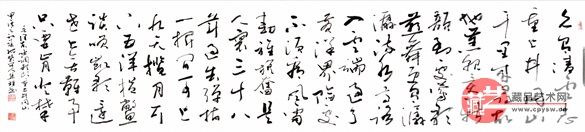 久有凌云志
重上井冈山
千里来寻故
地旧貌变新
颜到处莺歌
燕舞更有潺
潺流水高路
入云端过了
黄洋界险处
不须看风雷
动旌旗奋是
人寰三十八
年过去弹指
一挥间可上
九天揽月可
下五洋捉鳖
谈笑凯歌还
世上无难事
只要肯登攀
藏品艺术网
www.cpysw.cn